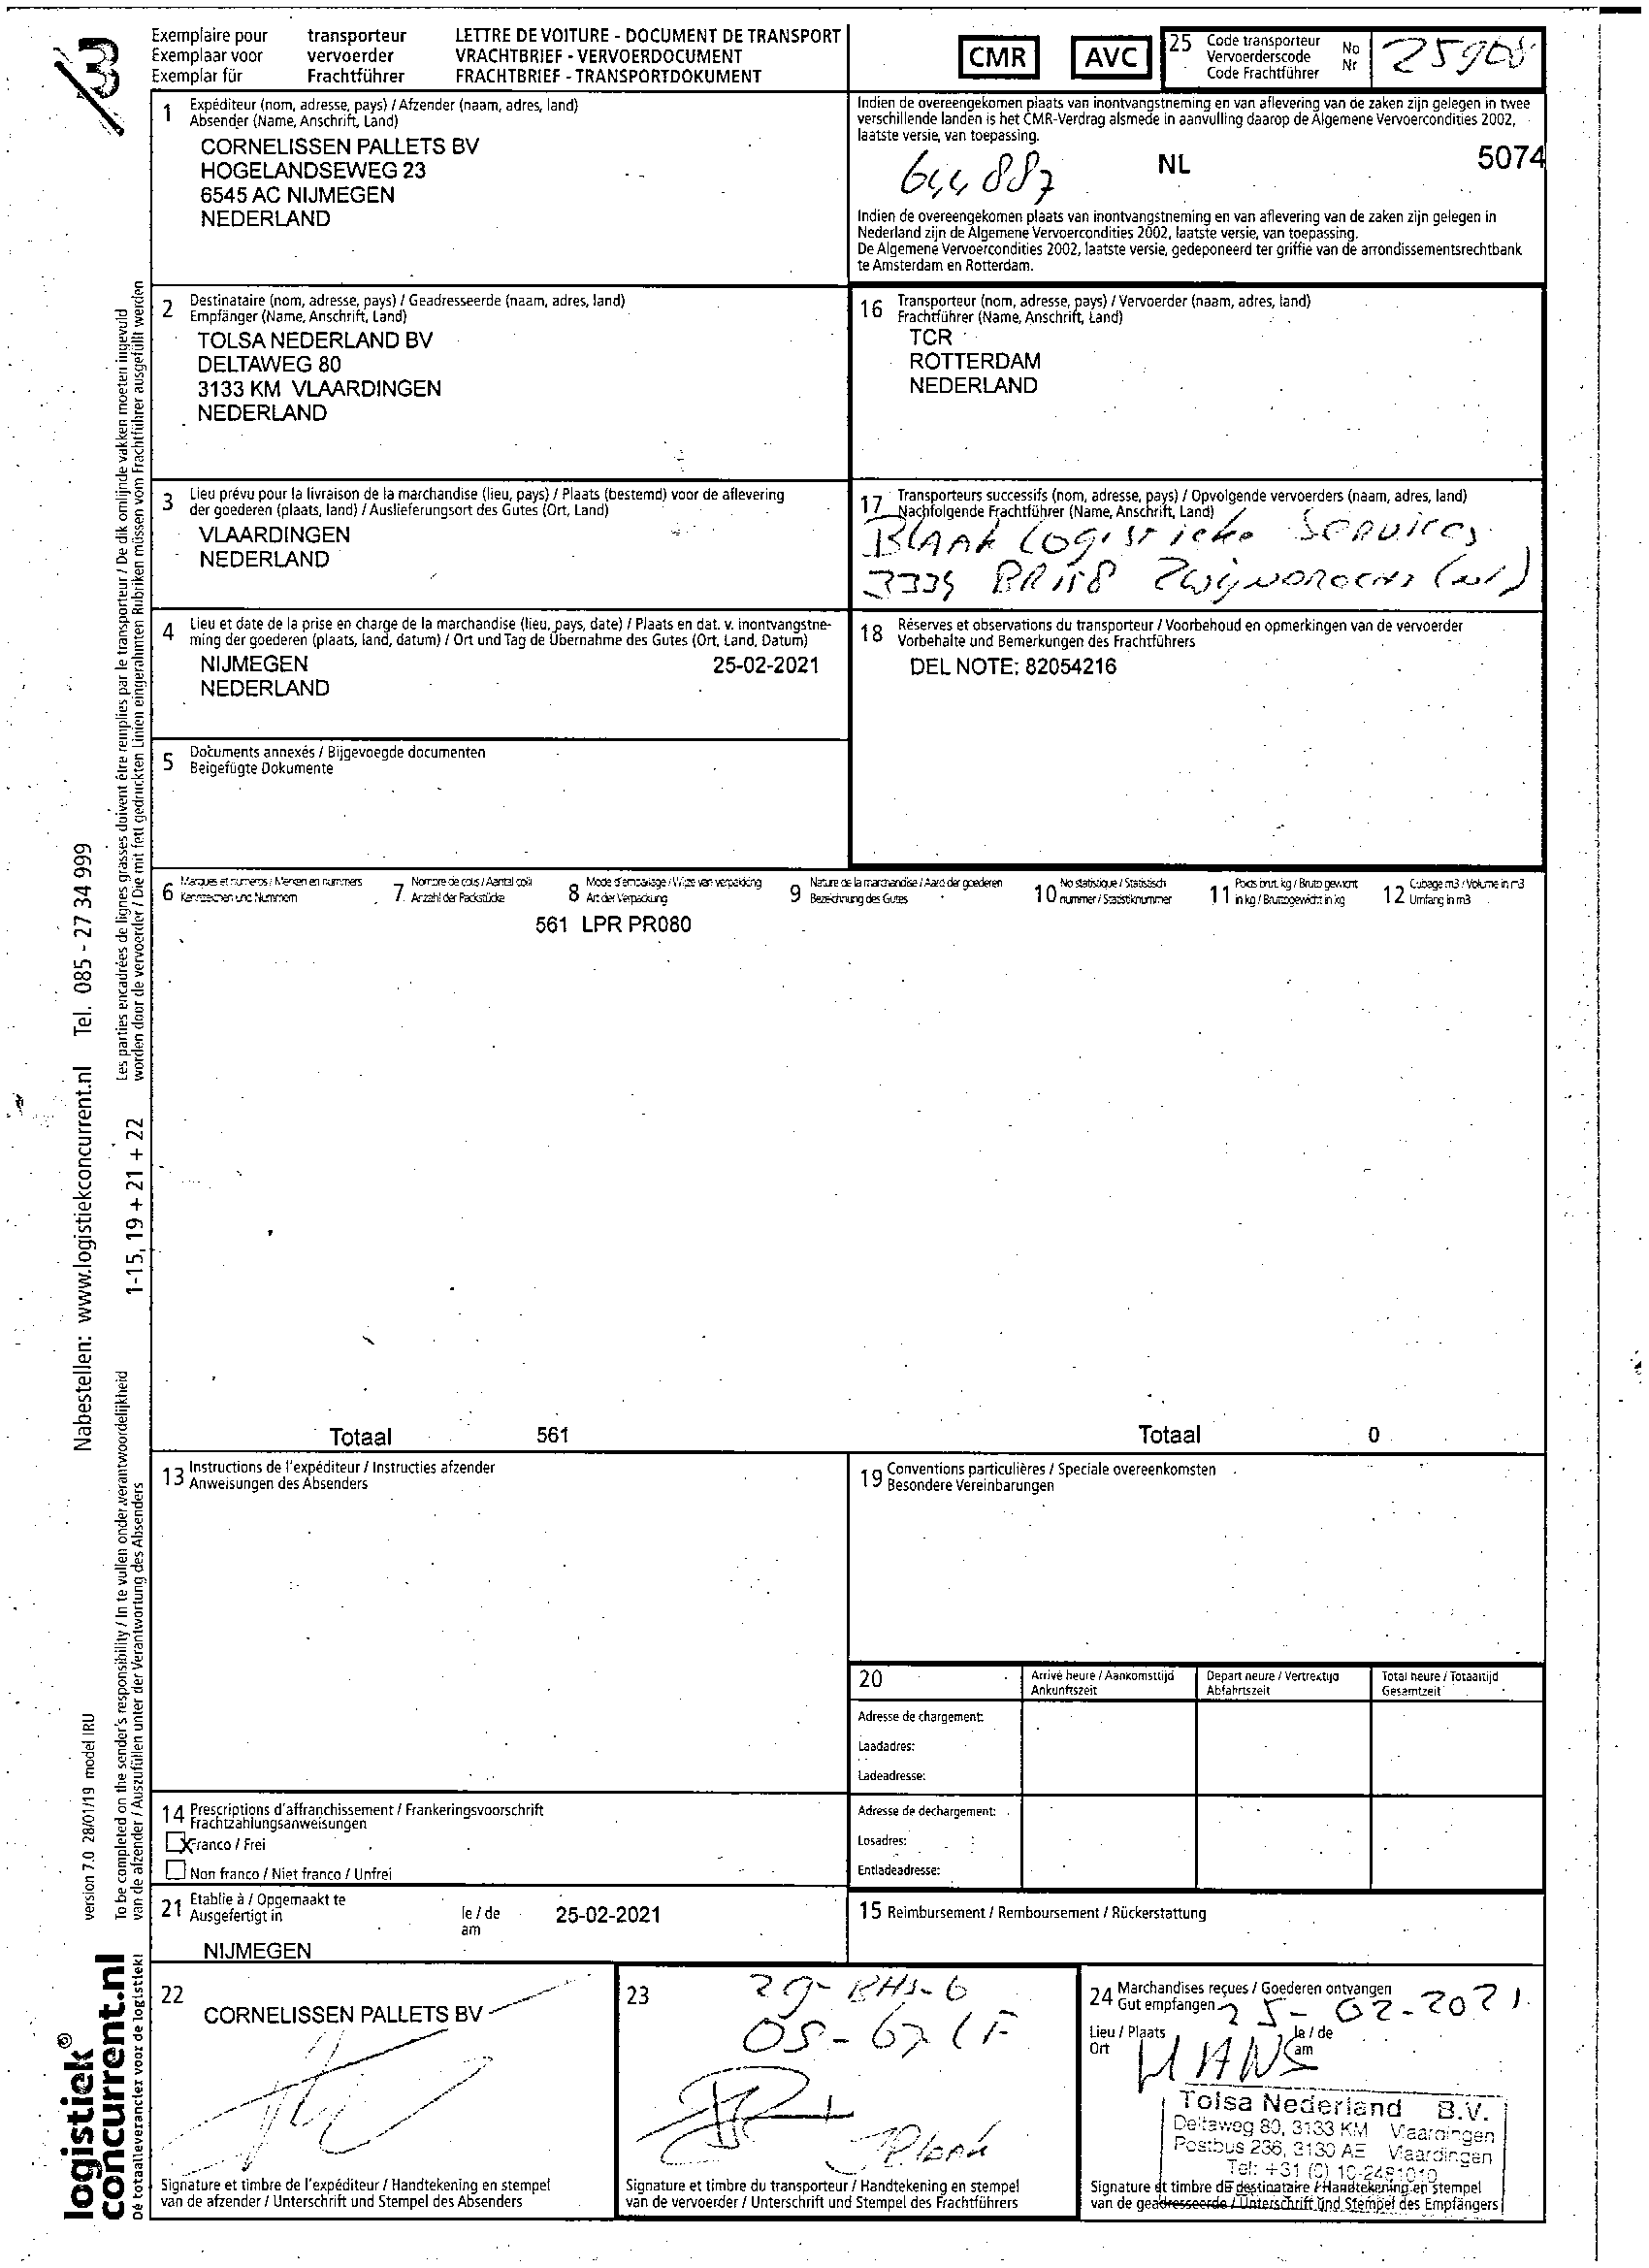 3
Exemplaire pour transporteur
Exemplaar voor vervoerder
Exemplar für Frachtführer
LETTRE DE VOITURE - DOCUMENT DE TRANSPORT
VRACHTBRIEF - VERVOERDOCUMENT
FRACHTBRIEF - TRANSPORTDOKUMENT
CMR
AVC
25 Code transporteur
Vervoerderscode
Code Frachtführer
No
Nr
25908
1 Expéditeur (nom, adresse, pays) / Afzender (naam, adres, land)
Absender (Name, Anschrift, Land)
CORNELISSEN PALLETS BV
HOGELANDSEWEG 23
6545 AC NIJMEGEN
NEDERLAND
Indien de overeengekomen plaats van inontvangstneming en van aflevering van de zaken zijn gelegen in twee
verschillende landen is het CMR-Verdrag alsmede in aanvulling daarop de Algemene Vervoercondities 2002,
laatste versie, van toepassing.
644887 NL 5074
Indien de overeengekomen plaats van inontvangstneming en van aflevering van de zaken zijn gelegen in
Nederland zijn de Algemene Vervoercondities 2002, laatste versie, van toepassing.
De Algemene Vervoercondities 2002, laatste versie, gedeponeerd ter griffie van de arrondissementsrechtbank
te Amsterdam en Rotterdam.
2 Destinataire (nom, adresse, pays) / Geadresseerde (naam, adres, land)
Empfänger (Name, Anschrift, Land)
TOLSA NEDERLAND BV
DELTAWEG 80
3133 KM VLAARDINGEN
NEDERLAND
16 Transporteur (nom, adresse, pays) / Vervoerder (naam, adres, land)
Frachtführer (Name, Anschrift, Land)
TCR
ROTTERDAM
NEDERLAND
3 Lieu prévu pour la livraison de la marchandise (lieu, pays) / Plaats (bestemd) voor de aflevering
der goederen (plaats, land) / Auslieferungsort des Gutes (Ort, Land)
VLAARDINGEN
NEDERLAND
17 Transporteurs successifs (nom, adresse, pays) / Opvolgende vervoerders (naam, adres, land)
Nachfolgende Frachtführer (Name, Anschrift, Land)
Blaak Logistieke Services
BR 158 Zwijndrecht (nl)
4 Lieu et date de la prise en charge de la marchandise (lieu, pays, date) / Plaats en dat. v. inontvangstne-
ming der goederen (plaats, land, datum) / Ort und Tag de Übernahme des Gutes (Ort, Land, Datum)
NIJMEGEN 25-02-2021
NEDERLAND
18 Réserves et observations du transporteur / Voorbehoud en opmerkingen van de vervoerder
Vorbehalte und Bemerkungen des Frachtführers
DEL NOTE: 82054216
5 Documents annexés / Bijgevoegde documenten
Beigefügte Dokumente
6 Marques et numeros / Merken en nummers
Kennzeichen und Nummern
7 Nombre de colis / Aantal colli
Anzahl der Packstücke
8 Mode d'emballage / Wijze van verpakking
Art der Verpackung
9 Nature de la marchandise / Aard der goederen
Bezeichnung des Gutes
10 No statistique / Statistisch
nummer / Statistiknummer
11 Poids brut. kg / Bruto gewicht
in kg / Bruttogewicht in kg
12 Cubage m3 / Volume in m3
Umfang in m3
561 LPR PR080
Totaal 561
Totaal 0
13 Instructions de l'expéditeur / Instructies afzender
Anweisungen des Absenders
19 Conventions particulières / Speciale overeenkomsten
Besondere Vereinbarungen
20 Arrivé heure / Aankomsttijd
Ankunftszeit
Depart heure / Vertrektijd
Abfahrtszeit
Total heure / Totaaltijd
Gesamtzeit
Adresse de chargement:
Laadadres:
Ladeadresse:
Adresse de dechargement:
Losadres:
Entladeadresse:
14 Prescriptions d'affranchissement / Frankeringsvoorschrift
Frachtzahlungsanweisungen
X Franco / Frei
Non franco / Niet franco / Unfrei
21 Etablie à / Opgemaakt te
Ausgefertigt in
le / de
am
25-02-2021
NIJMEGEN
15 Reimbursement / Remboursement / Rückerstattung
22
CORNELISSEN PALLETS BV
Signature et timbre de l'expéditeur / Handtekening en stempel
van de afzender / Unterschrift und Stempel des Absenders
23
29-BHS-6
OS-67LF
Signature et timbre du transporteur / Handtekening en stempel
van de vervoerder / Unterschrift und Stempel des Frachtführers
24 Marchandises reçues / Goederen ontvangen
Gut empfangen
25-02-2021
Lieu / Plaats
Ort
le / de
am
HANS
Tolsa Nederland B.V.
Deltaweg 80, 3133 KM Vlaardingen
Postbus 236, 3130 AE Vlaardingen
Tel: +31 (0) 10-2481010
Signature et timbre du destinataire / Handtekening en stempel
van de geadresseerde / Unterschrift und Stempel des Empfängers
Les parties encadrées de lignes grasses doivent être remplies par le transporteur / De dik omlijnde vakken moeten ingevuld
worden door de vervoerder / Die mit fett gedruckten Linien eingerahmten Rubriken müssen vom Frachtführer ausgefüllt werden
1-15, 19 + 21 + 22
To be completed on the sender's responsibility / In te vullen onder verantwoordelijkheid
van de afzender / Auszufüllen unter der Verantwortung des Absenders
Nabestellen: www.logistiekconcurrent.nl Tel. 085 - 27 34 999
version 7.0 28/01/19 model IRU
logistiek®
concurrent.nl
Dé totaalleverancier voor de logistiek!